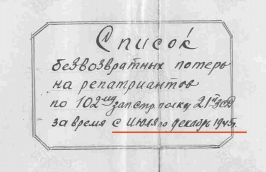 Список
безвозвратных потерь
на репатриантов
по 102му зап стр. полку 21й зсд
за время с июля по декабрь 1945г.